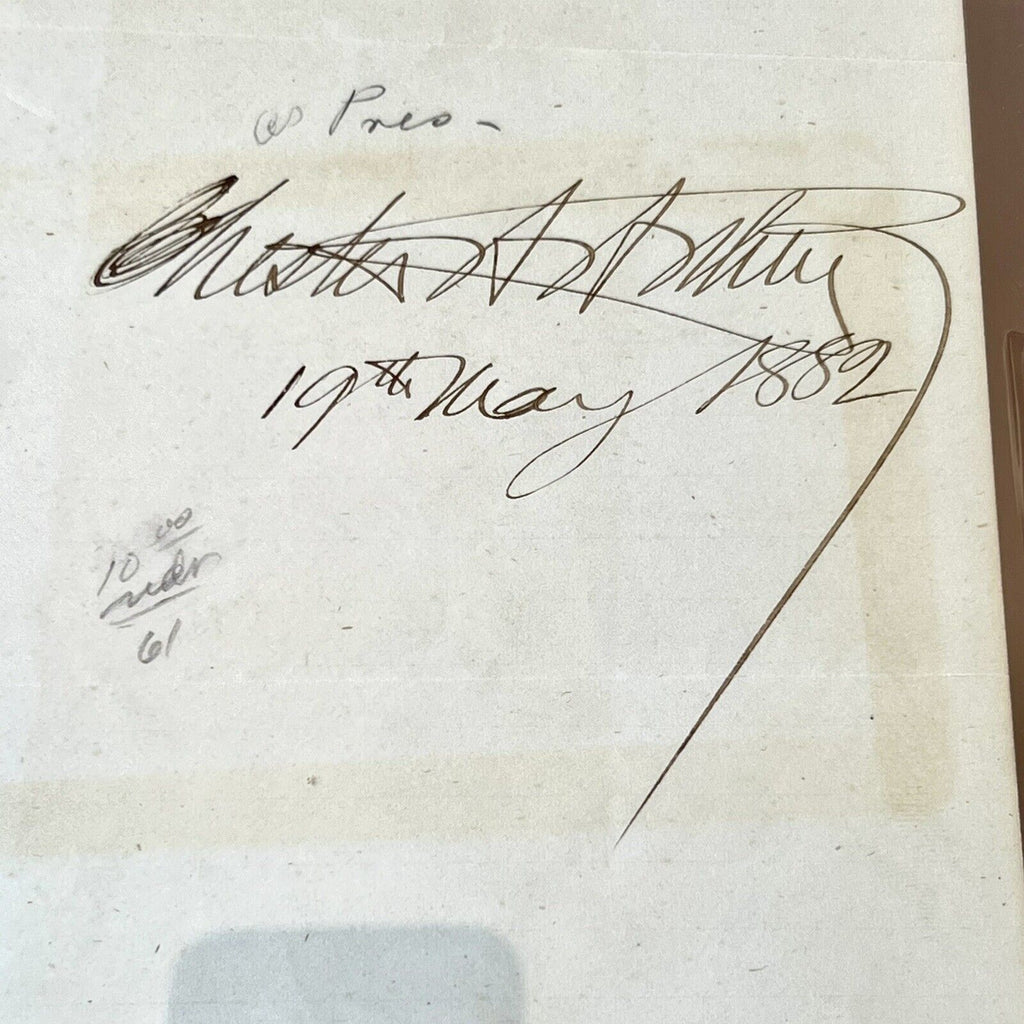 as Pres -
Chester A Arthur
19th May 1882
10 00
61